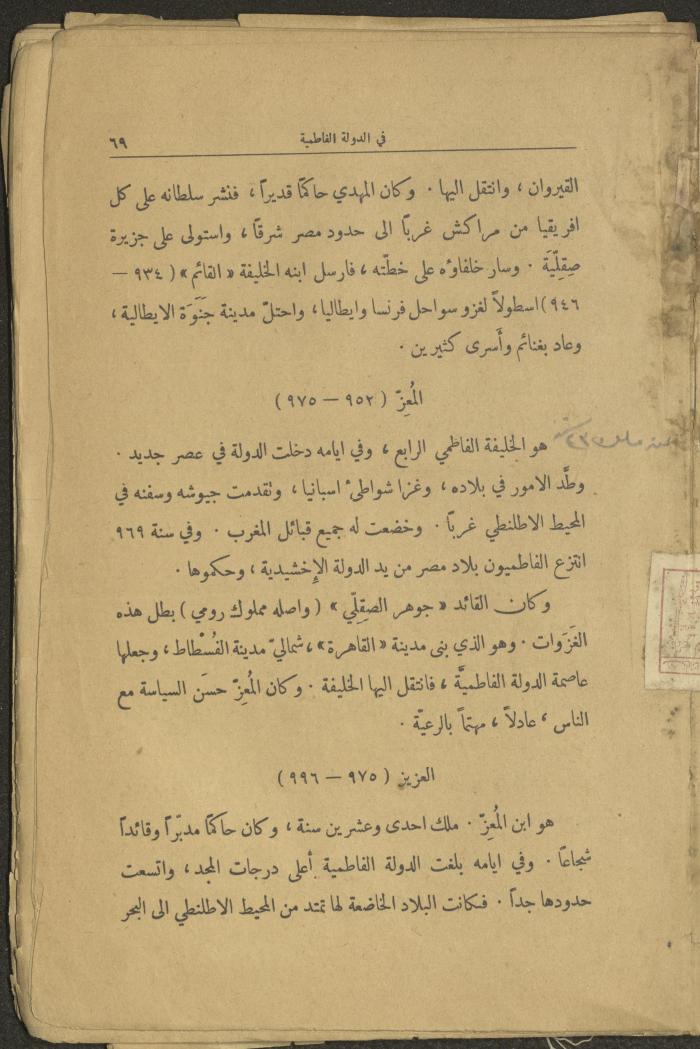 في الدولة الفاطمية ٦٩
القيروان ، وانتقل اليها . وكان المهدي حاكمًا قديراً ، فنشر سلطانه على كل
افريقيا من مراكش غرباً الى حدود مصر شرقاً ، واستولى على جزيرة
صِقِلِّيَة . وسار خلفاؤه على خطّته ، فارسل ابنه الخليفة « القائم » ( ٩٣٤ —
٩٤٦ ) اسطولاً لغزو سواحل فرنسا وايطاليا ، واحتلّ مدينة جَنَوَة الايطالية ،
وعاد بغنائم وأَسرى كثيرين .
المُعِزّ ( ٩٥٢ — ٩٧٥ )
هو الخليفة الفاطمي الرابع ، وفي ايامه دخلت الدولة في عصر جديد .
وطَّد الامور في بلاده ، وغزا شواطئ اسبانيا ، وتقدمت جيوشه وسفنه في
المحيط الاطلنطي غرباً . وخضعت له جميع قبائل المغرب . وفي سنة ٩٦٩
انتزع الفاطميون بلاد مصر من يد الدولة الإِخشيدية ، وحكموها .
وكان القائد « جوهر الصِقِلّي » ( واصله مملوك رومي ) بطل هذه
الغَزَوات . وهو الذي بنى مدينة « القاهرة » ، شماليّ مدينة الفُسْطاط ، وجعلها
عاصمة الدولة الفاطميَّة ، فانتقل اليها الخليفة . وكان المُعِزّ حسَن السياسة مع
الناس ، عادلاً ، مهتماً بالرعيّة .
العزيز ( ٩٧٥ — ٩٩٦ )
هو ابن المُعِزّ . ملك احدى وعشرين سنة ، وكان حاكمًا مدبّراً وقائداً
شجاعاً . وفي ايامه بلغت الدولة الفاطمية أعلى درجات المجد ، واتسعت
حدودها جداً . فكانت البلاد الخاضعة لها تمتد من المحيط الاطلنطي الى البحر